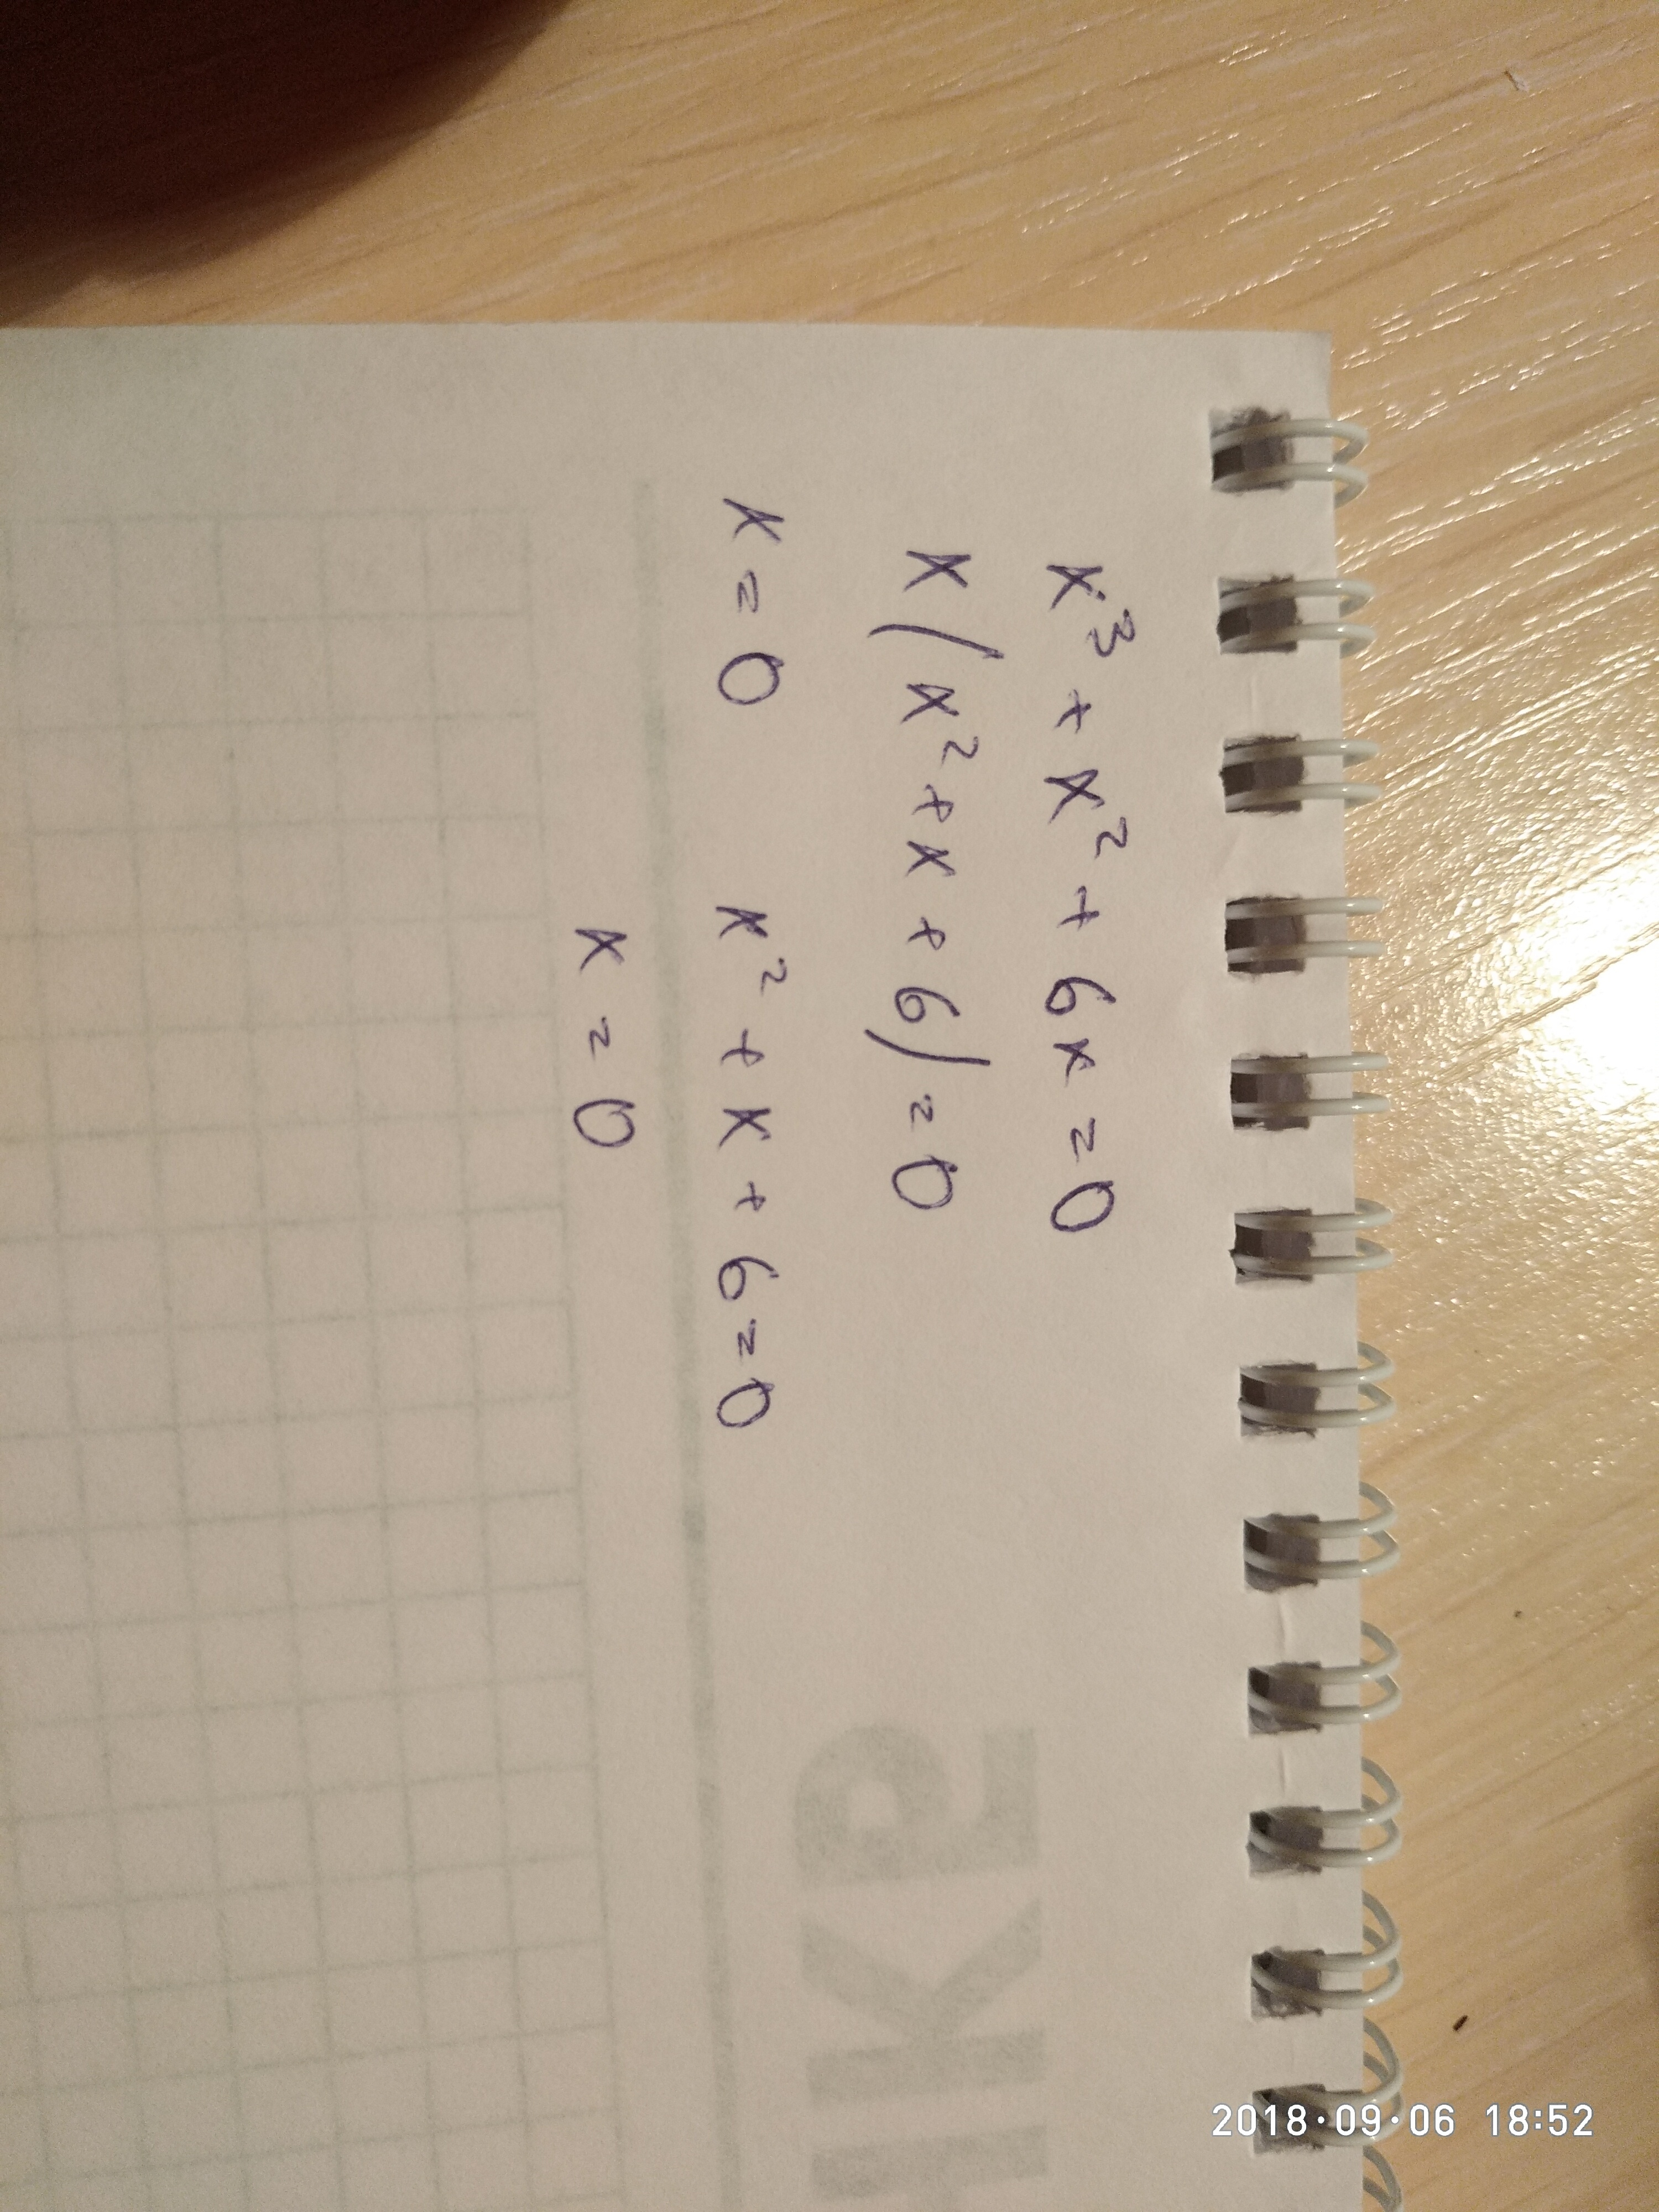 x³ + x² + 6x = 0
x(x² + x + 6) = 0
x = 0 x² + x + 6 = 0
x = 0
2018·09·06 18:52